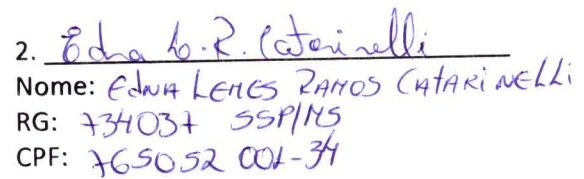 2. Edna L. R. Catarinelli
Nome: EDNA LEMES RAMOS CATARINELLI
RG: 734037 SSP/MS
CPF: 765052 001-34